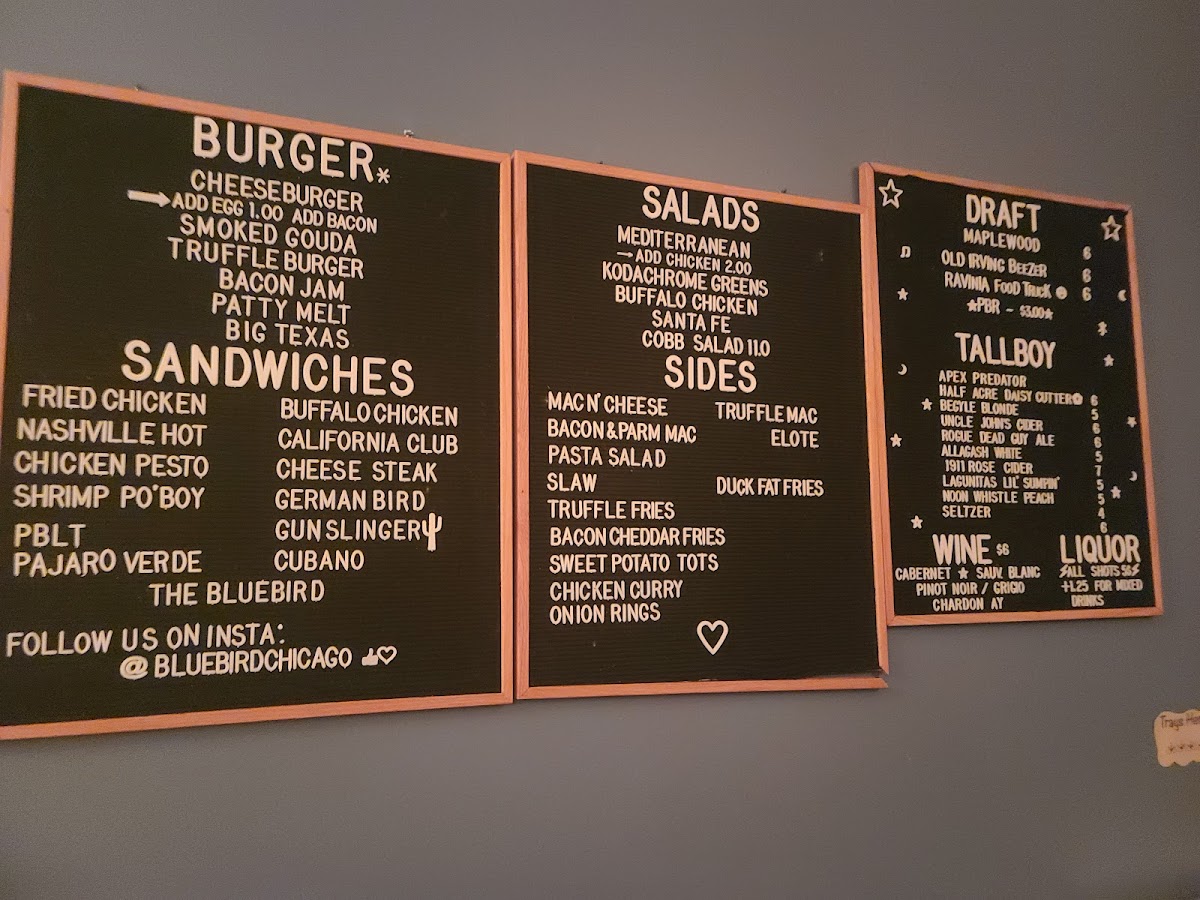 BURGER*
CHEESEBURGER
ADD EGG 1.00 ADD BACON
SMOKED GOUDA
TRUFFLE BURGER
BACON JAM
PATTY MELT
BIG TEXAS
SANDWICHES
FRIED CHICKEN
NASHVILLE HOT
CHICKEN PESTO
SHRIMP PO'BOY
PBLT
PAJARO VERDE
BUFFALO CHICKEN
CALIFORNIA CLUB
CHEESE STEAK
GERMAN BIRD
GUNSLINGER
CUBANO
THE BLUEBIRD
FOLLOW US ON INSTA:
@BLUEBIRDCHICAGO
SALADS
MEDITERRANEAN
→ADD CHICKEN 2.00
KODACHROME GREENS
BUFFALO CHICKEN
SANTA FE
COBB SALAD 11.0
SIDES
MAC N' CHEESE
BACON&PARM MAC
PASTA SALAD
SLAW
TRUFFLE FRIES
BACON CHEDDAR FRIES
SWEET POTATO TOTS
CHICKEN CURRY
ONION RINGS
TRUFFLE MAC
ELOTE
DUCK FAT FRIES
DRAFT
MAPLEWOOD 6
OLD IRVING BEEZER 6
RAVINIA FOOD TRUCK 6
★PBR - $3.00★
TALLBOY
APEX PREDATOR
HALF ACRE DAISY CUTTER 6
BEGYLE BLONDE 5
UNCLE JOHN'S CIDER 6
ROGUE DEAD GUY ALE 6
ALLAGASH WHITE 5
1911 ROSE CIDER 7
LAGUNITAS LIL' SUMPIN' 5
NOON WHISTLE PEACH 5
SELTZER 4
6
WINE $6
CABERNET ★ SAUV. BLANC
PINOT NOIR / GRIGIO
CHARDON AY
LIQUOR
ALL SHOTS 5$
+1.25 FOR MIXED
DRINKS
Trays